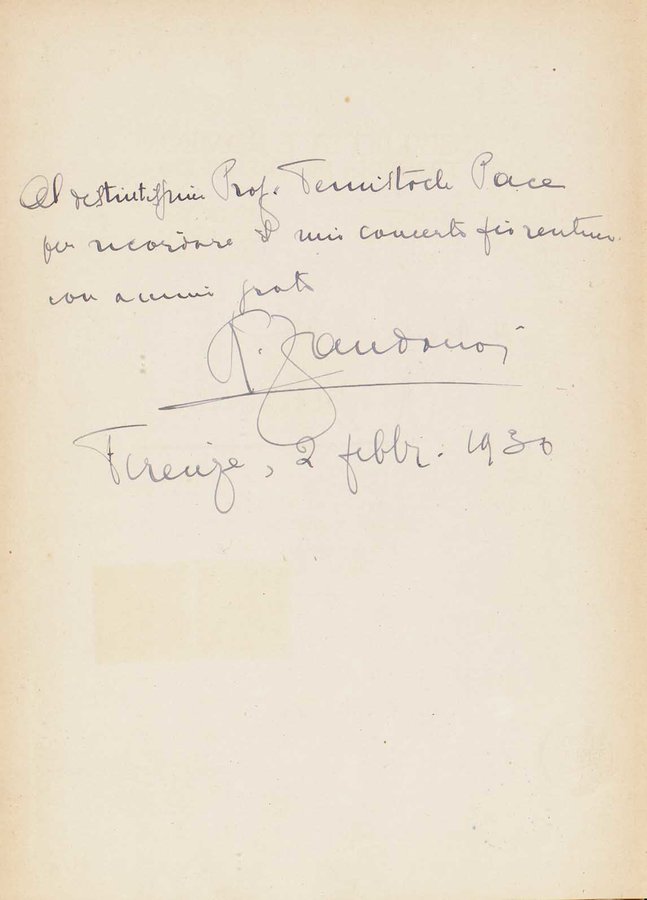 Al distintissimo Prof. Temistocle Pace
per ricordare il mio concerto fiorentino.
con animo grato
R. Zandonai
Firenze, 2 febbr. 1930